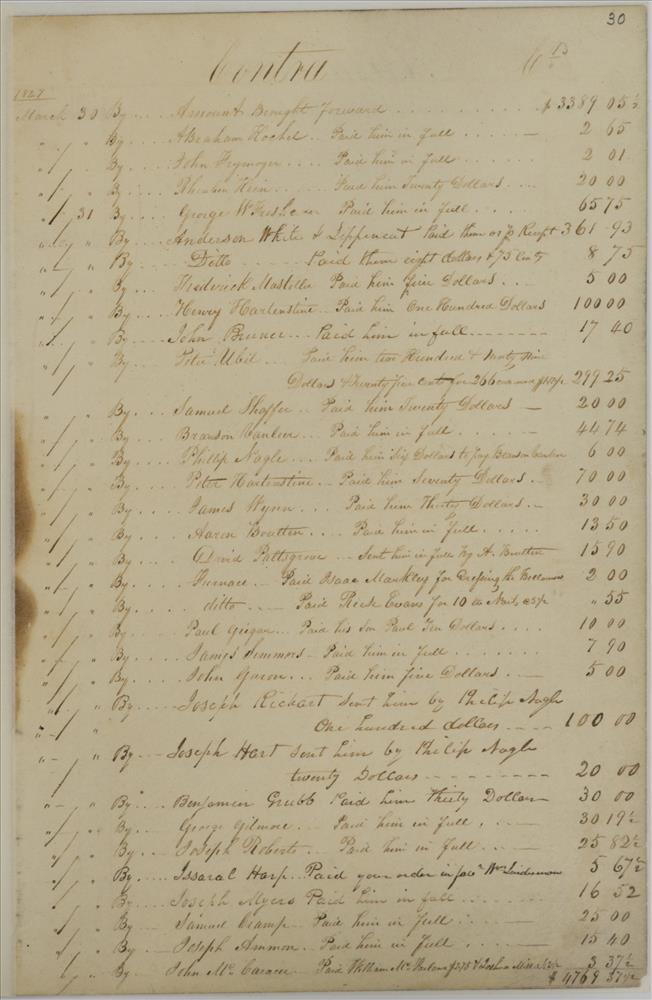 30
Contra Crs
1827
March 30 By .... Amount Brought Forward ........ $ 3389 05½
" / " By ... Abraham Hochel .. Paid him in full ..... — 2 65
" / " By ... John .... Paid him in full ...... 2 01
" / " By ... Rheuben Hein ...... Paid him Twenty Dollars .... 20 00
" / 31 By .... George W Paid him in full .... 65 75
" " By ... Anderson White & Lippincut Paid them as pr Receipt 361 93
" " By — Ditto ...... Paid them eight dollars & 75 Cents 8 75
" / " By ... Fredrick Mastolla Paid him five Dollars ... 5 00
" / " By ... Henry Hartenstine .. Paid him One Hundred Dollars 100 00
" / " By ... John Bruner ... Paid him in full ....... 17 40
" / " By ... Peter Ubil .... Paid him two Hundred & Ninty Nine
Dollars & Twenty five cents for 266 299 25
" / " By ... Samuel Shaffer .. Paid him Twenty Dollars — 20 00
" / " By ... Branson Vanleer ... Paid him in full ...... 44 74
" / " By ... Phillip Nagle .... Paid him Six Dollars to pay Branson Vanleer 6 00
" / " By .... Peter Hartenstine — Paid him Seventy Dollars . — 70 00
" / " By .... James Wynn ... Paid him Thirty Dollars . — 30 00
" / " By .... Aaron Boutten .... Paid him in full ..... 13 50
" / " By .... David Pottsgrove — Sent him in full by A. Boutten 15 90
" / " By ... Furnace .. Paid Isaac Mankley for Dressing the Bellows 2 00
" / " By .... ditto ..... Paid Reese Evans for 10 lb Nails, " 55
" / " By .... Paul Geiger ... Paid his Son Paul Ten Dollars .... 10 00
" / " By — James Simmors — Paid him in full ....... 7 90
" / " By .... John Garon ... Paid him five Dollars ... — 5 00
" / " By ..... Joseph Rickart Sent him by Philip Nagle
One hundred dollars .... 100 00
" — " By .... Joseph Hart Sent him by Philip Nagle
twenty Dollars ........ 20 00
" / " By .... Benjamin Grubb Paid him thirty Dollars — 30 00
" / " By — George Gilmore ... Paid him in full , .... 30 19½
" / " By .... Joseph Roberts .. Paid him in full .... — 25 82½
" / " By .... Issaral Harp .. Paid your order in favr Wm 5 67½
" / " By .... Joseph Myers Paid him in full ..... — 16 52
" / " By .... Samuel Cramp .. Paid him in full ..... — 25 00
" / " By ... Joseph Ammon . Paid him in full ...... — 15 40
" / " By .... John Mc .... Paid William Mc 3 37½
$ 4769